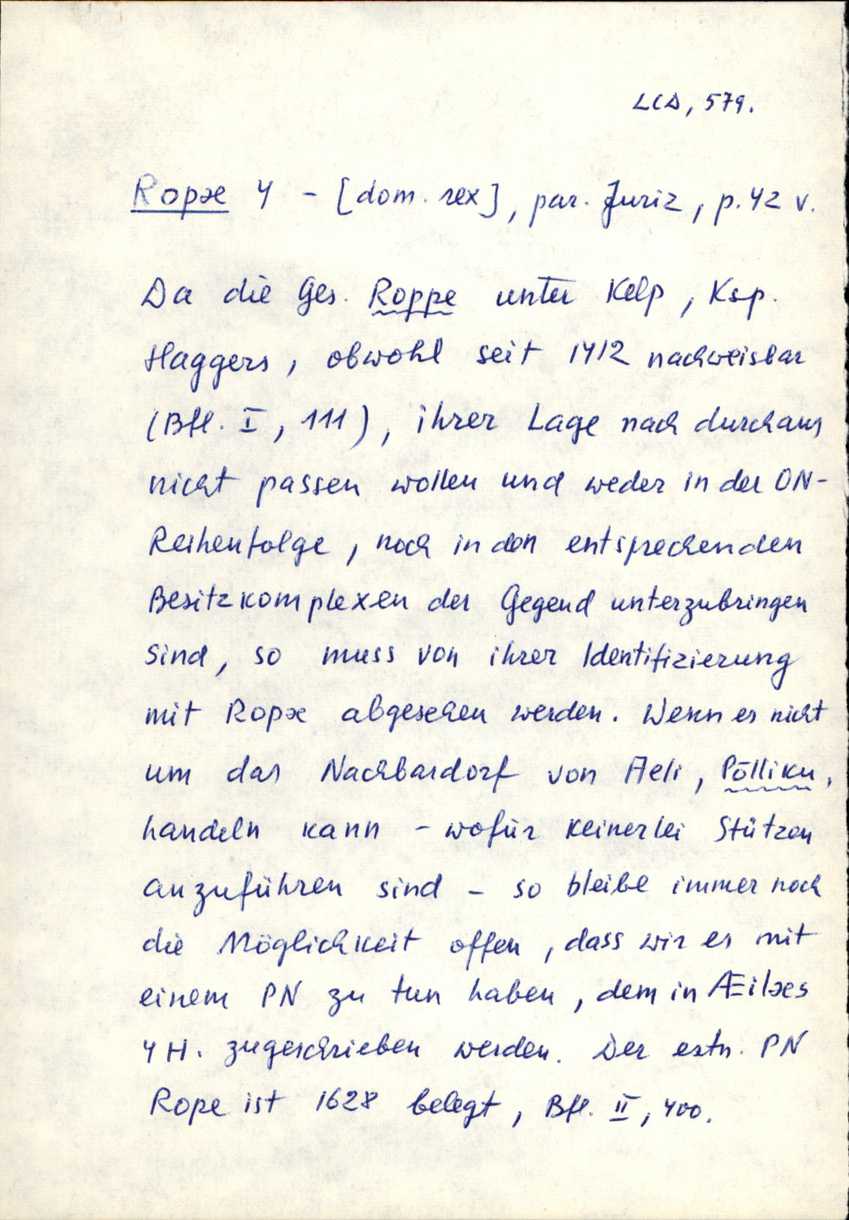 LCD, 579.
Ropæ 4 - [dom. rex], par. Juriz, p. 42 v.
Da die Ges. Roppe unter Kelp, Ksp.
Haggers, obwohl seit 1412 nachweisbar
(Bfl. I, 111), ihrer Lage nach durchaus
nicht passen wollen und weder in der ON-
Reihenfolge, noch in den entsprechenden
Besitzkomplexen der Gegend unterzubringen
sind, so muss von ihrer Identifizierung
mit Ropæ abgesehen werden. Wenn es nicht
um das Nachbardorf von Aeli, Põlliku,
handeln kann - wofür keinerlei Stützen
anzuführen sind - so bleibe immer noch
die Möglichkeit offen, dass wir es mit
einem PN zu tun haben, dem in Æilæs
4 H. zugeschrieben werden. Der estn. PN
Rope ist 1628 belegt, Bfl. II, 400.